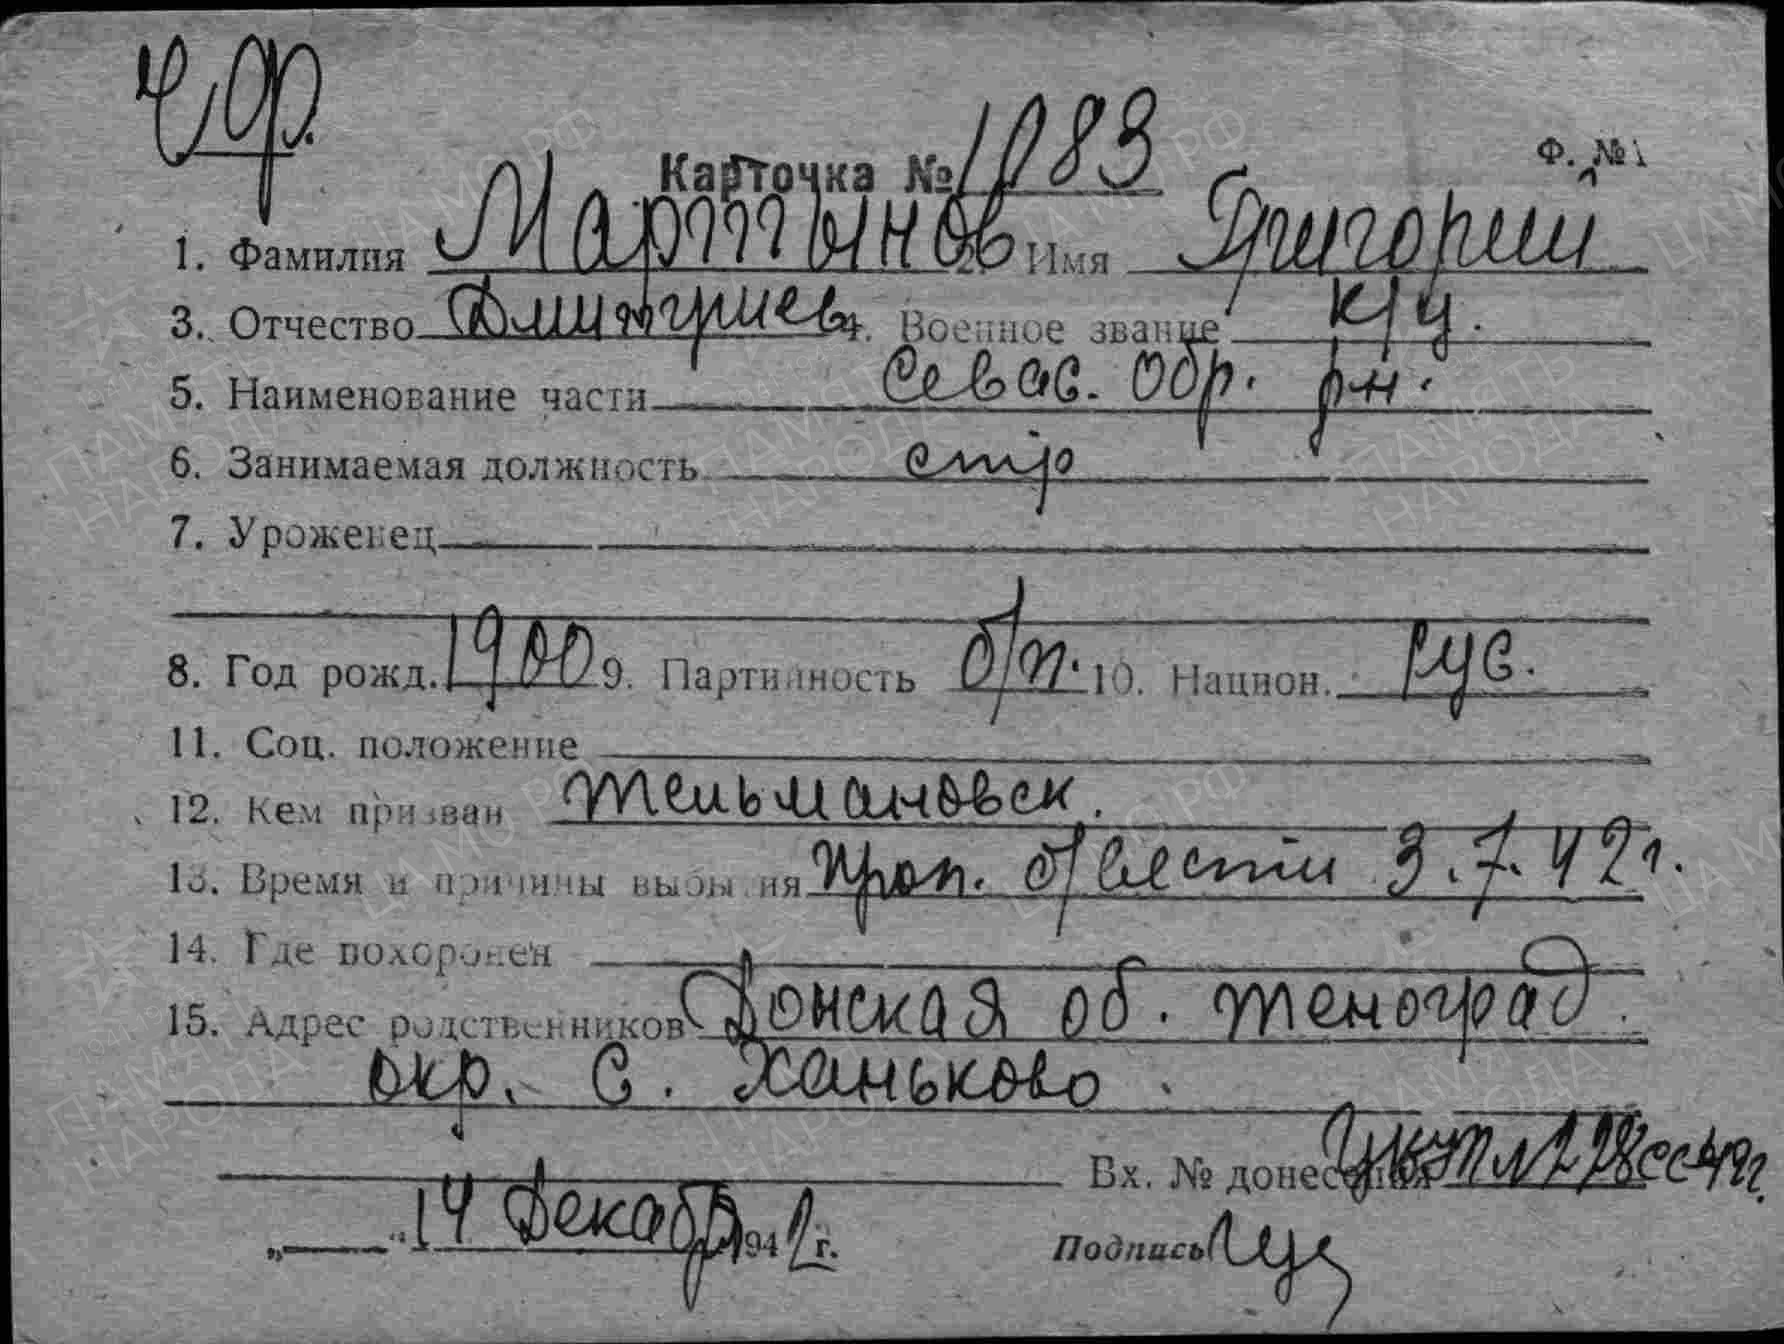 Ч.Ф.
Карточка № 1083 Ф. № 1
1. Фамилия Мартынов 2. Имя Григорий
3. Отчество Дмитриев 4. Военное звание к/ц.
5. Наименование части Севас. Обр. рн.
6. Занимаемая должность стр
7. Уроженец
8. Год рожд. 1900 9. Партийность б/п. 10. Национ. рус.
11. Соц. положение
12. Кем призван Тельмановск.
13. Время и причины выбытия проп. б/вести 3.7.42 г.
14. Где похоронен
15. Адрес родственников Донская об. Теноград.
окр. с. Ханьково
Вх. № донесения
14 Декабря 1942 г. Подпись
ЦАМО РФ
ПАМЯТЬ НАРОДА